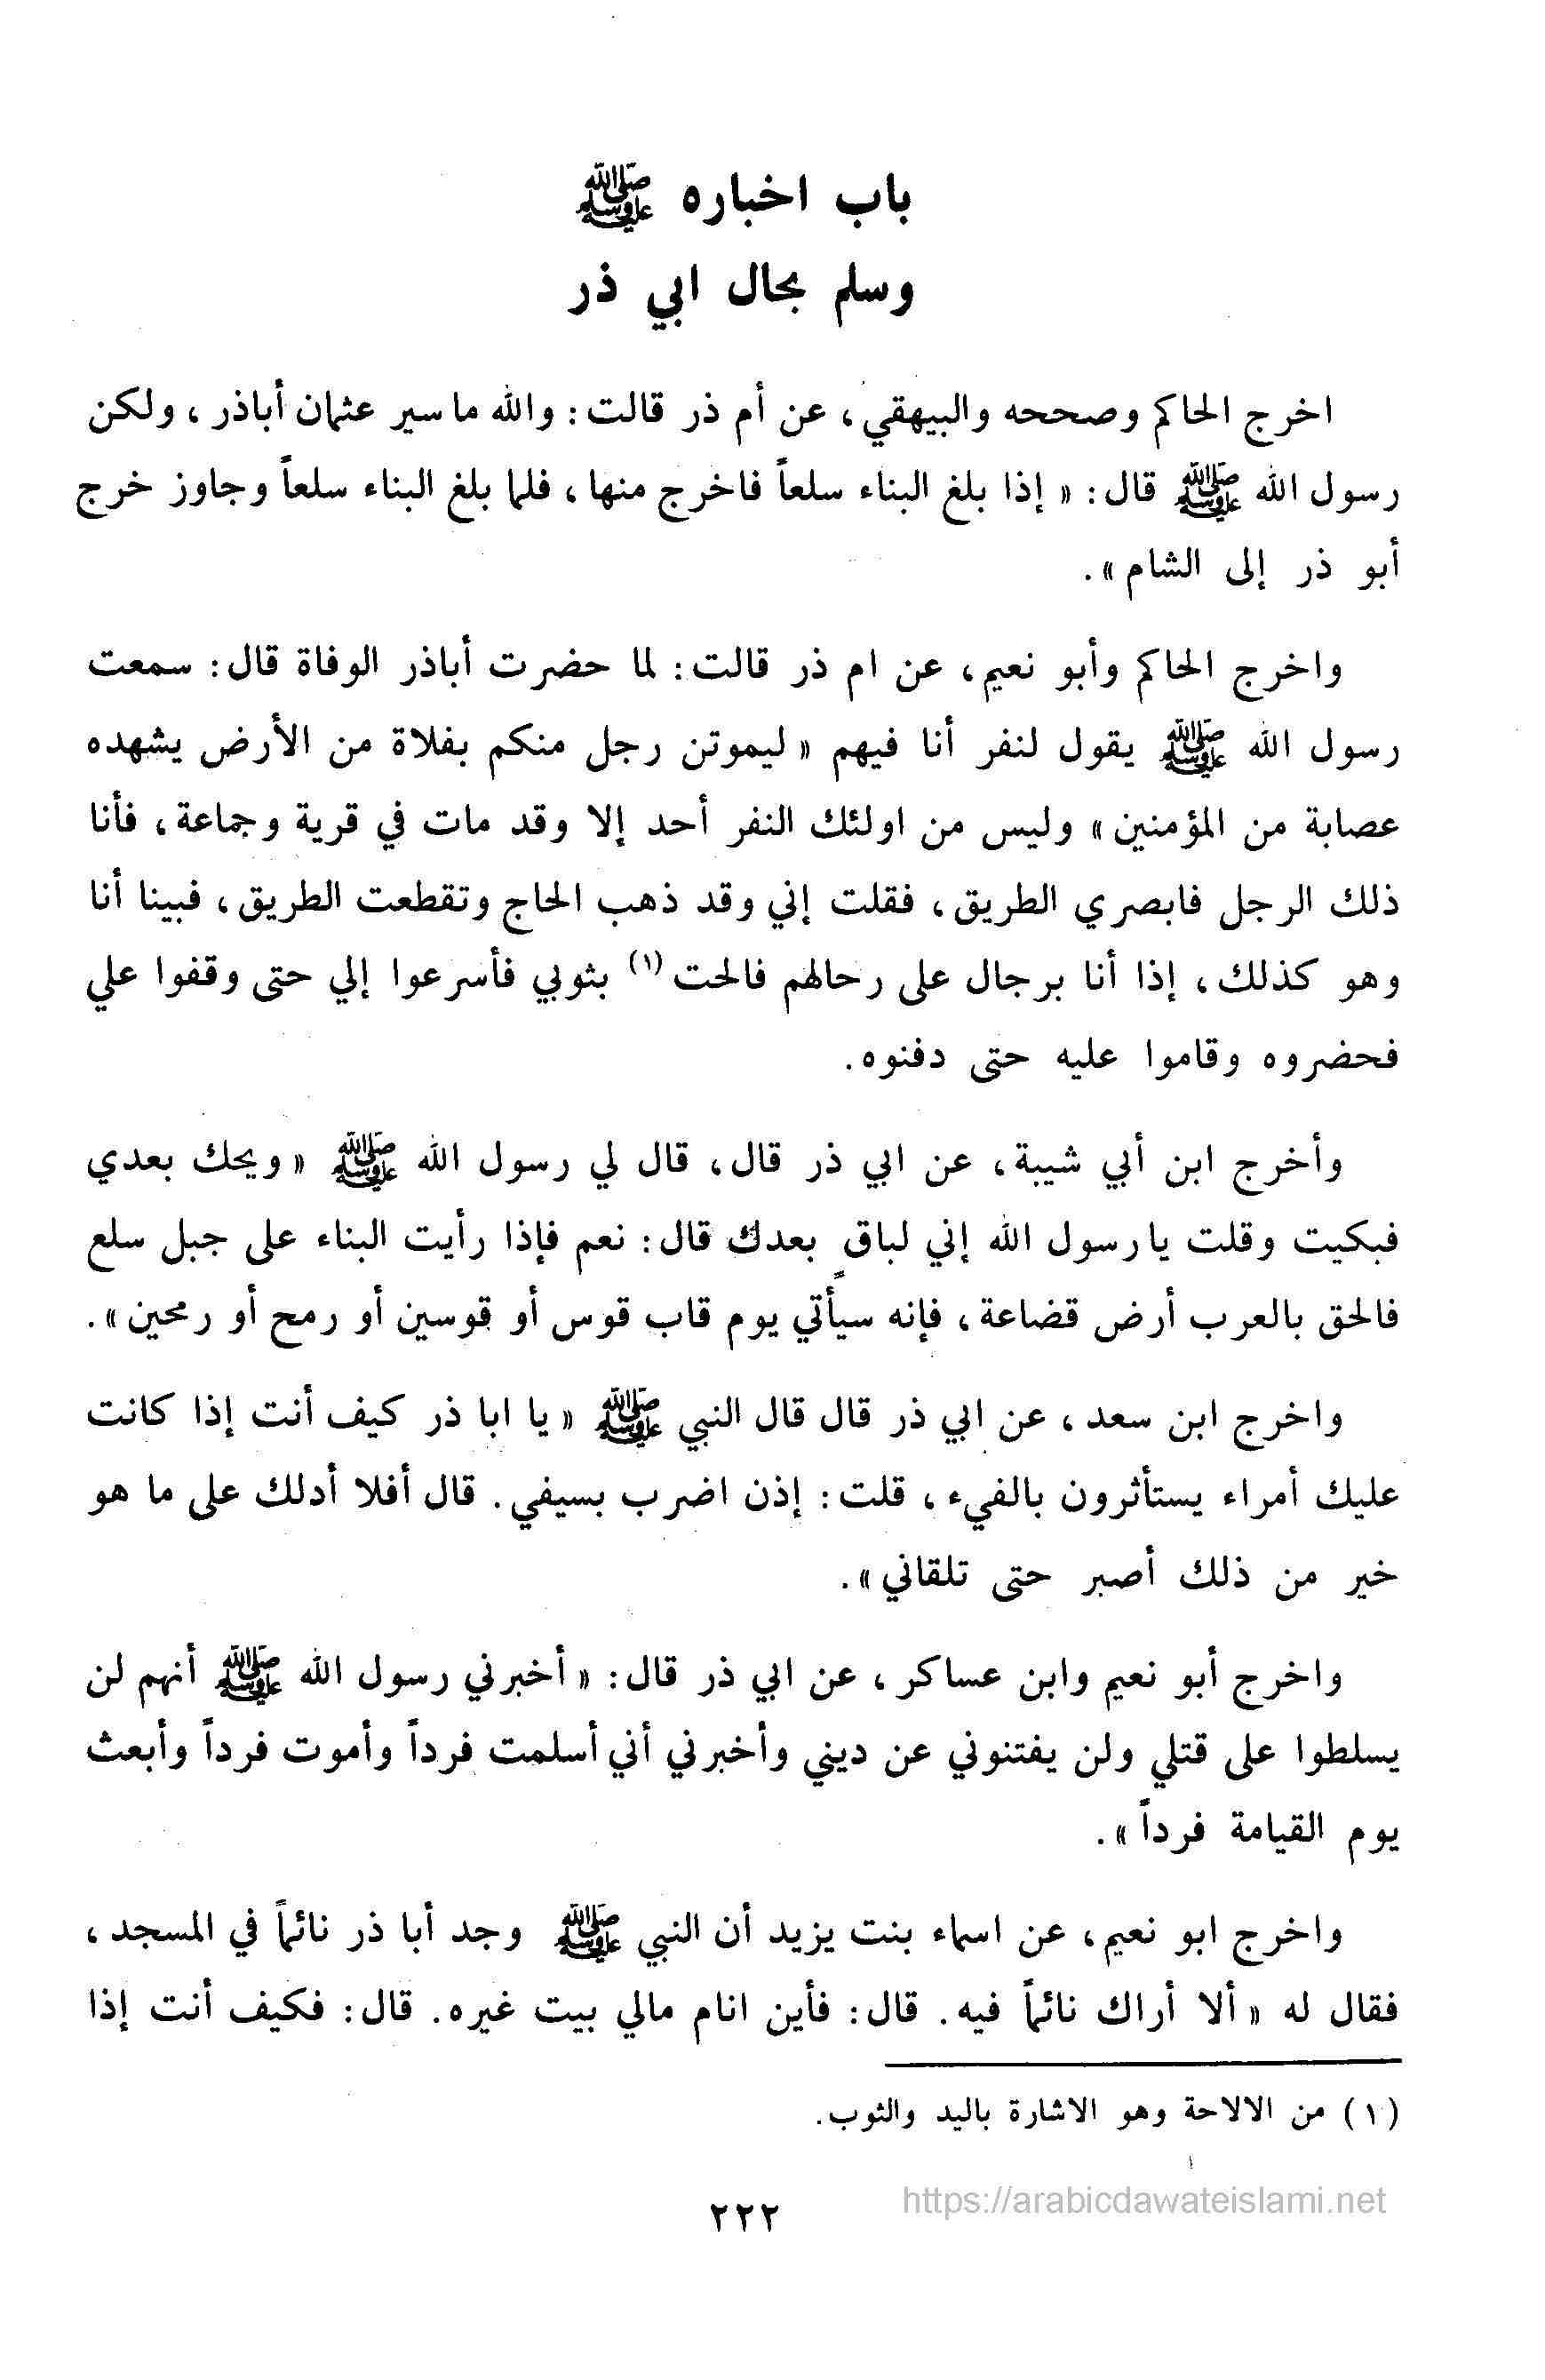 باب اخباره ﷺ
وسلم بحال ابي ذر
اخرج الحاكم وصححه والبيهقي، عن أم ذر قالت: والله ما سير عثمان أباذر، ولكن
رسول الله ﷺ قال: « إذا بلغ البناء سلعاً فاخرج منها، فلما بلغ البناء سلعاً وجاوز خرج
أبو ذر إلى الشام ».
واخرج الحاكم وأبو نعيم، عن ام ذر قالت: لما حضرت أباذر الوفاة قال: سمعت
رسول الله ﷺ يقول لنفر أنا فيهم « ليموتن رجل منكم بفلاة من الأرض يشهده
عصابة من المؤمنين » وليس من اولئك النفر أحد إلا وقد مات في قرية وجماعة، فأنا
ذلك الرجل فابصري الطريق، فقلت إني وقد ذهب الحاج وتقطعت الطريق، فبينا أنا
وهو كذلك، إذا أنا برجال على رحالهم فالحت (١) بثوبي فأسرعوا إلي حتى وقفوا علي
فحضروه وقاموا عليه حتى دفنوه.
وأخرج ابن أبي شيبة، عن ابي ذر قال، قال لي رسول الله ﷺ « ويحك بعدي
فبكيت وقلت يا رسول الله إني لباقٍ بعدك قال: نعم فإذا رأيت البناء على جبل سلع
فالحق بالعرب أرض قضاعة، فإنه سيأتي يوم قاب قوس أو قوسين أو رمح أو رمحين ».
واخرج ابن سعد، عن ابي ذر قال قال النبي ﷺ « يا ابا ذر كيف أنت إذا كانت
عليك أمراء يستأثرون بالفيء، قلت: إذن اضرب بسيفي. قال أفلا أدلك على ما هو
خير من ذلك أصبر حتى تلقاني ».
واخرج أبو نعيم وابن عساكر، عن ابي ذر قال: « أخبرني رسول الله ﷺ أنهم لن
يسلطوا على قتلي ولن يفتنوني عن ديني وأخبرني أني أسلمت فرداً وأموت فرداً وأبعث
يوم القيامة فرداً ».
واخرج ابو نعيم، عن اسماء بنت يزيد أن النبي ﷺ وجد أبا ذر نائماً في المسجد،
فقال له « ألا أراك نائماً فيه. قال: فأين انام مالي بيت غيره. قال: فكيف أنت إذا
(١) من الالاحة وهو الاشارة باليد والثوب.
٢٢٢
https://arabicdawateislami.net